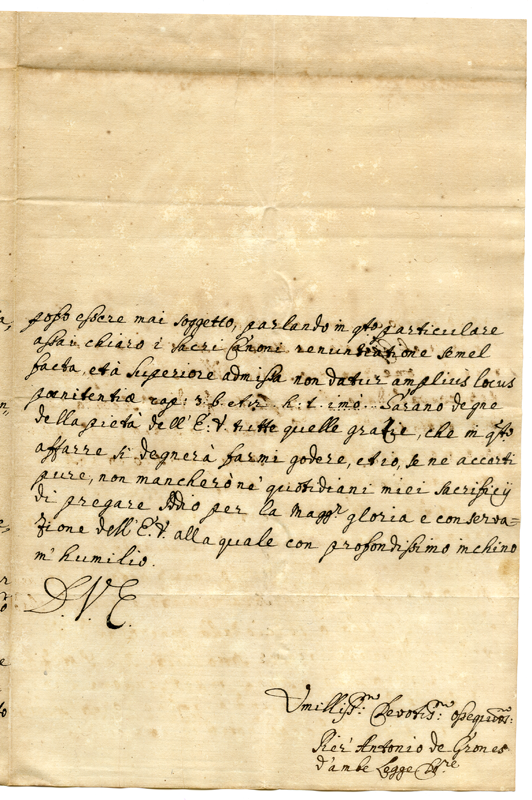 posso essere mai soggetto, parlando in qsto particulare
assai chiaro i sacri Canoni renuntiatione semel
facta, et à Superiore admissa non datur amplius locus
pœnitentiæ cap: 3. b. et h: t. imò. Sarano degne
della pietà dell' E. V. tutte quelle gratie, che in qsto
affarre si degnerà farmi godere, et io, se ne accerti
pure, non mancherò ne' quotidiani miei sacrificij
di pregare Iddio per la magg.r gloria e conserva=
zione dell' E. V. alla quale con profondissimo inchino
m' humilio.
D. V. E.
Umilliss:mo Devotis:mo Ossequios:mo
Pier' Antonio de Grones
d'ambe Legge